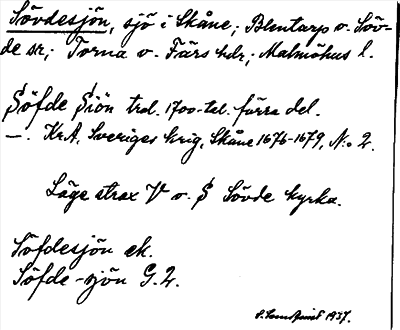 Sövdesjön, sjö i Skåne; Blentarp o. Söv-
de sn; Torna o. Färs hdr; Malmöhus l.
Söfde Siön trol. 1700-tal. förra del.
—. Kr.A. Sveriges krig, Skåne 1676-1679, N:o 2.
Läge strax V o. S Sövde kyrka.
Söfdesjön ek.
Söfde-sjön G.2.
1937.